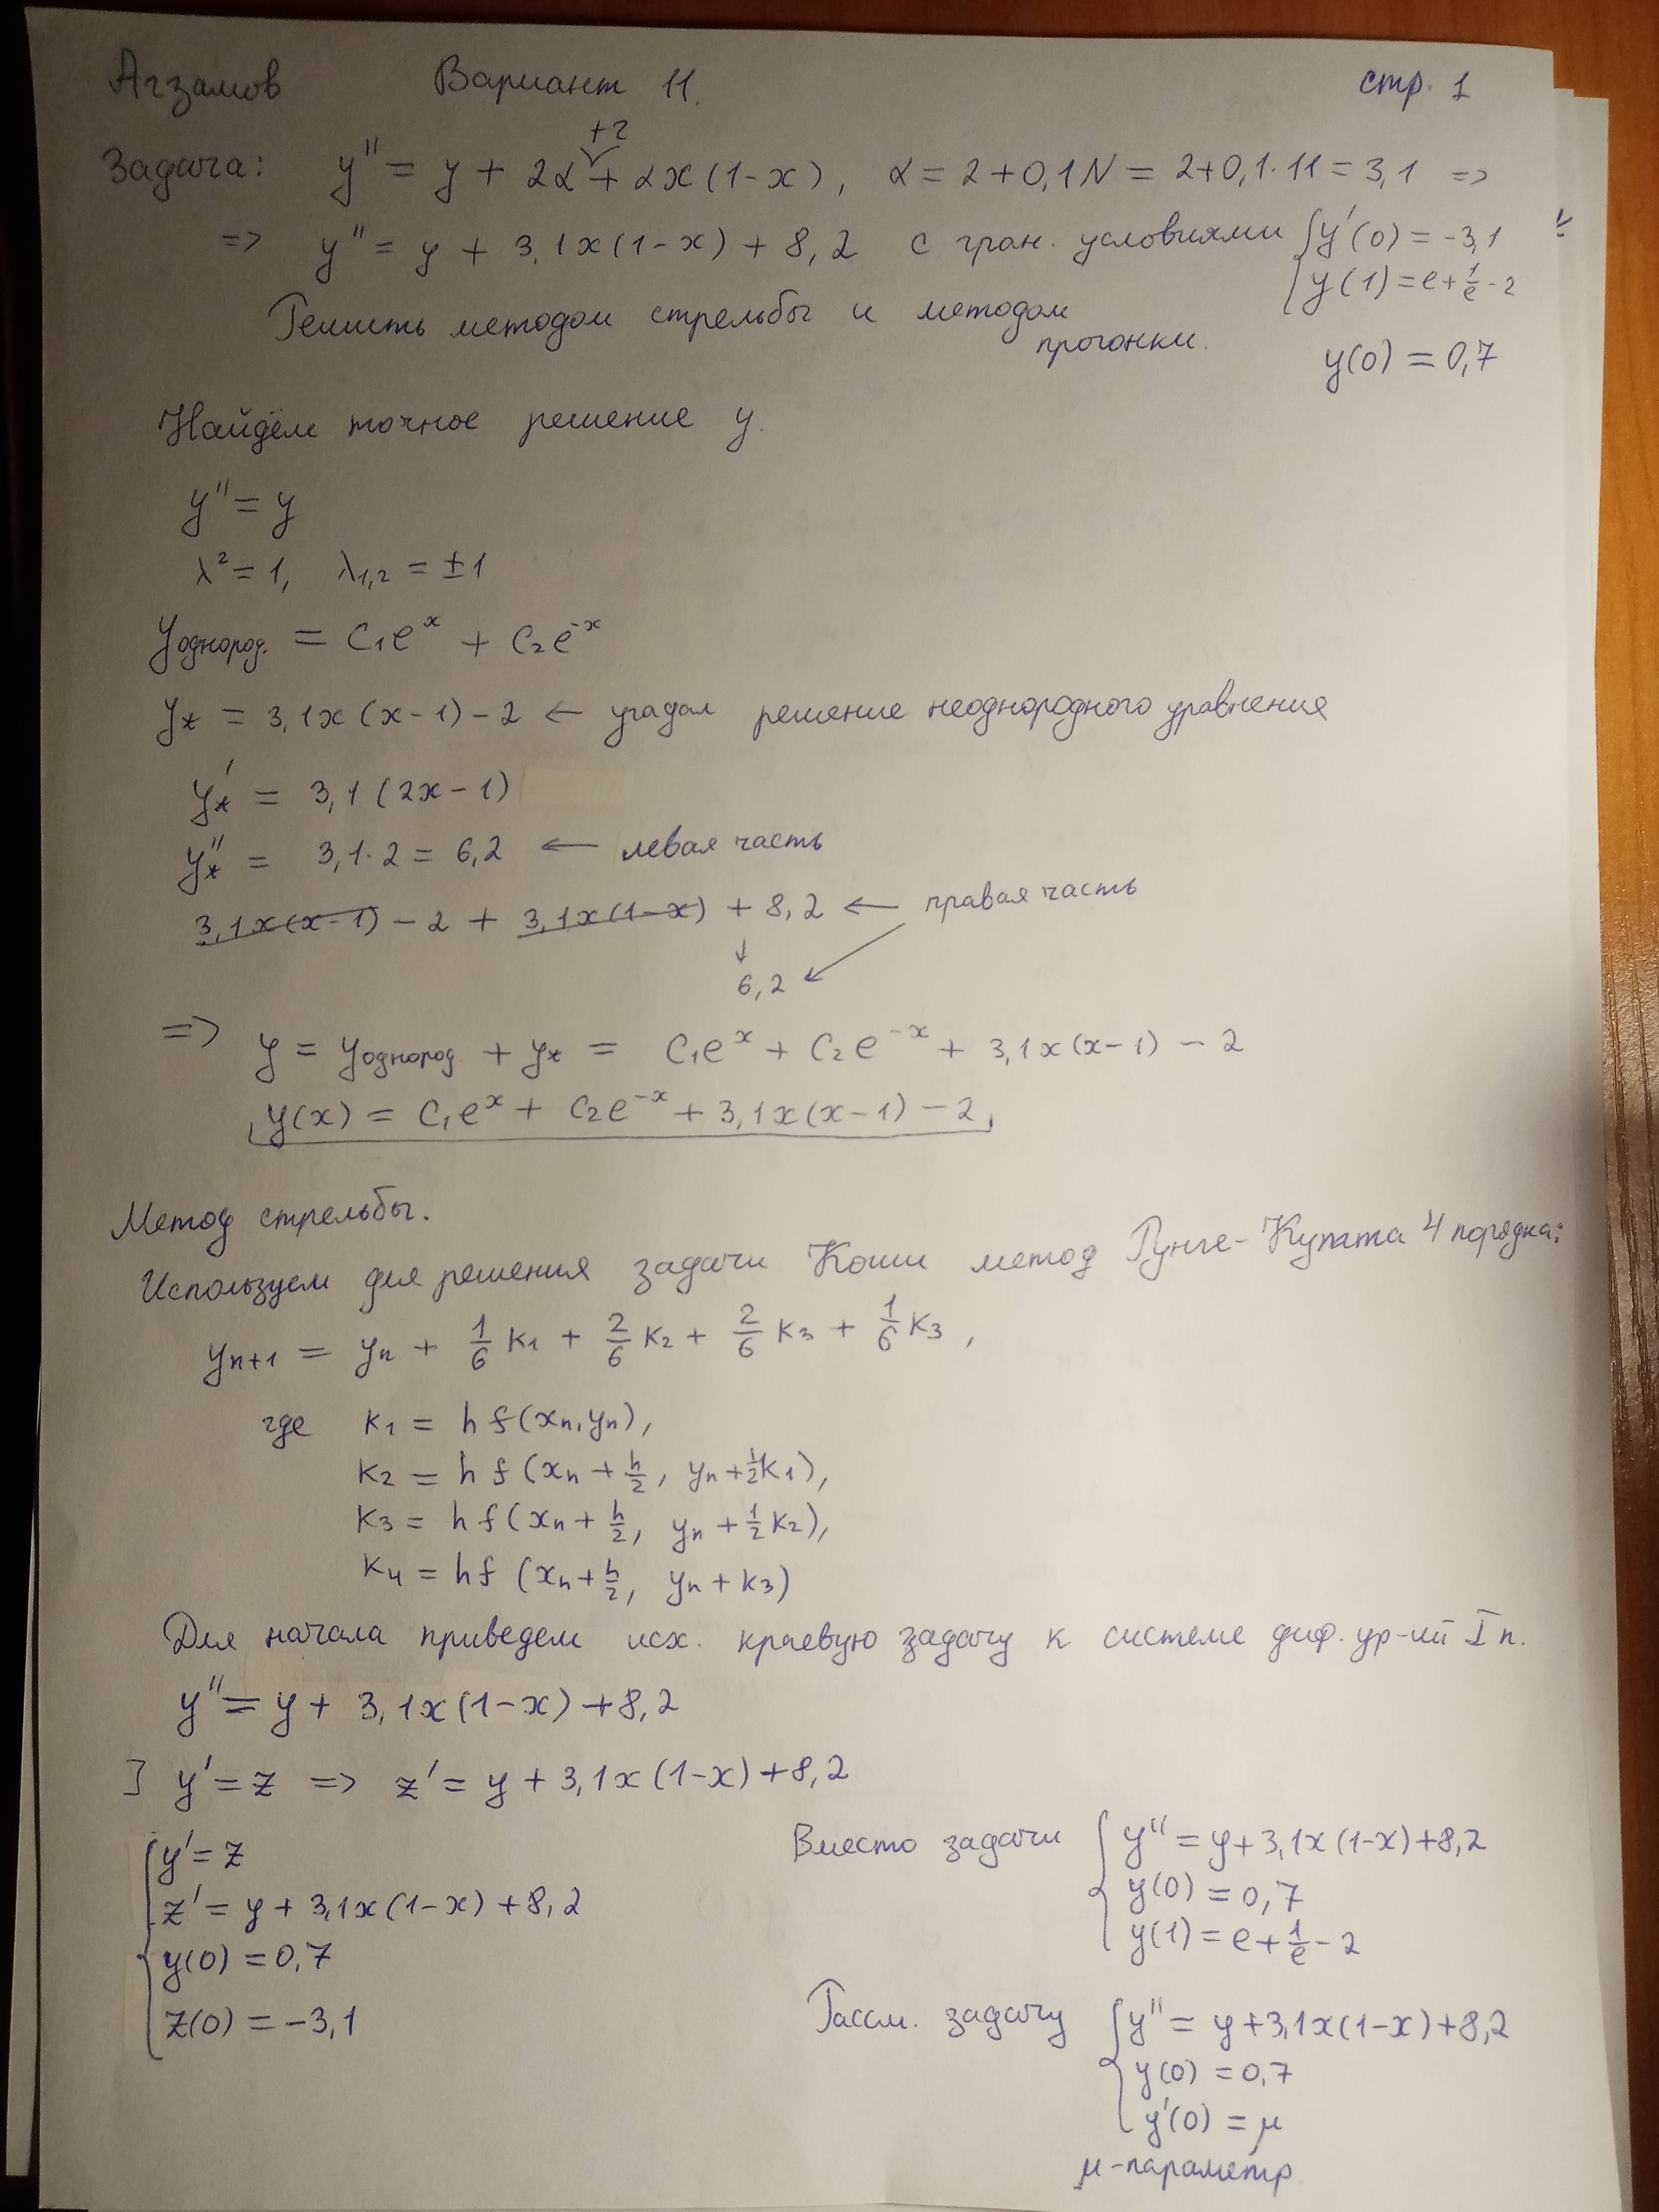 Агзамов Вариант 11. стр. 1
+2
Задача: y'' = y + 2α + αx(1-x), α = 2+0,1N = 2+0,1·11 = 3,1 =>
=> y'' = y + 3,1x(1-x) + 8,2 с гран. условиями { y'(0) = -3,1
y(1) = e + 1/e - 2
Решить методом стрельбы и методом
прогонки.
y(0) = 0,7
Найдём точное решение y.
y'' = y
λ² = 1, λ1,2 = ±1
yоднород. = C₁e^x + C₂e^-x
y* = 3,1x(x-1) - 2 ← угадал решение неоднородного уравнения
y*' = 3,1(2x-1)
y*'' = 3,1·2 = 6,2 ← левая часть
3,1x(x-1) - 2 + 3,1x(1-x) + 8,2 ← правая часть
↓
6,2
=> y = yоднород. + y* = C₁e^x + C₂e^-x + 3,1x(x-1) - 2
y(x) = C₁e^x + C₂e^-x + 3,1x(x-1) - 2
Метод стрельбы.
Используем для решения задачи Коши метод Рунге-Кутта 4 порядка:
yn+1 = yn + 1/6 K1 + 2/6 K2 + 2/6 K3 + 1/6 K3,
где K1 = hf(xn, yn),
K2 = hf(xn + h/2, yn + 1/2 K1),
K3 = hf(xn + h/2, yn + 1/2 K2),
K4 = hf(xn + h/2, yn + K3)
Для начала приведем исх. краевую задачу к системе диф. ур-ий I п.
y'' = y + 3,1x(1-x) + 8,2
] y' = z => z' = y + 3,1x(1-x) + 8,2
{ y' = z
z' = y + 3,1x(1-x) + 8,2
y(0) = 0,7
z(0) = -3,1
Вместо задачи { y'' = y + 3,1x(1-x) + 8,2
y(0) = 0,7
y(1) = e + 1/e - 2
Рассм. задачу { y'' = y + 3,1x(1-x) + 8,2
y(0) = 0,7
y'(0) = μ
μ-параметр